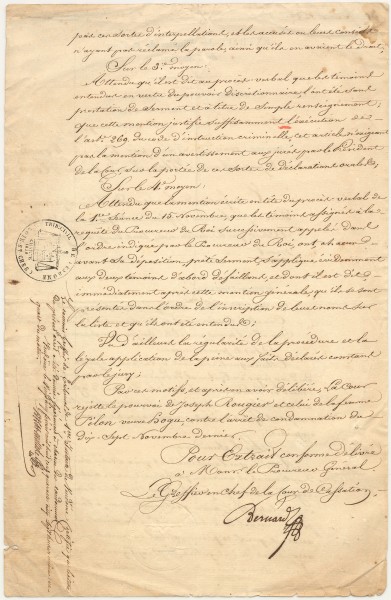 pas en sorte d'interpellations, et les accusés ou leurs conseils
n'ayant pas réclamé la parole, ainsi qu'ils en avaient le droit,
Sur le 3e. moyen:
Attendu qu'il est dit au procès verbal que les témoins
entendus en vertu du pouvoir discrétionnaire, l'ont été sans
prestation de Serment et à titre de Simple renseignement;
que cette mention justifie suffisamment l'exécution de
l'arte. 269 du code d'instruction criminelle, cet article n'exigeant
pas la mention d'un avertissement aux jurés par le Président
de la Cour, Sur la portée de ces Sorte de Déclarations orales;
Sur le 4e. moyen:
Attendu que la mention écrite en tête du procès verbal de
la 1ere Séance du 15 Novembre, que les témoins assignés à la
requête du Procureur du Roi Successivement appelés dans
l'ordre indiqué par le Procureur du Roi, ont, chacun
avant Sa déposition, prêté Serment S'applique évidemment
aux deux témoins d'abord défaillants et dont il est dit
immédiatement après cette mention générale, qu'ils se sont
présentés dans l'ordre de l'inscription de leurs noms sur
la liste et qu'ils ont été entendus;
Vu d'ailleurs la régularité de la procédure et la
légale application de la peine aux faits déclarés constants
par le jury;
Par ces motifs, et après en avoir délibéré, la Cour
rejette le pourvoi de Joseph Rougier et celui de la femme
Pélon veuve Boque, contre l'arrêt de condamnation du
Dix Sept Novembre dernier.
Pour Extrait conforme délivré
à Monsr. le Procureur Général
Le Greffier en chef de la Cour de Cassation
Bernard